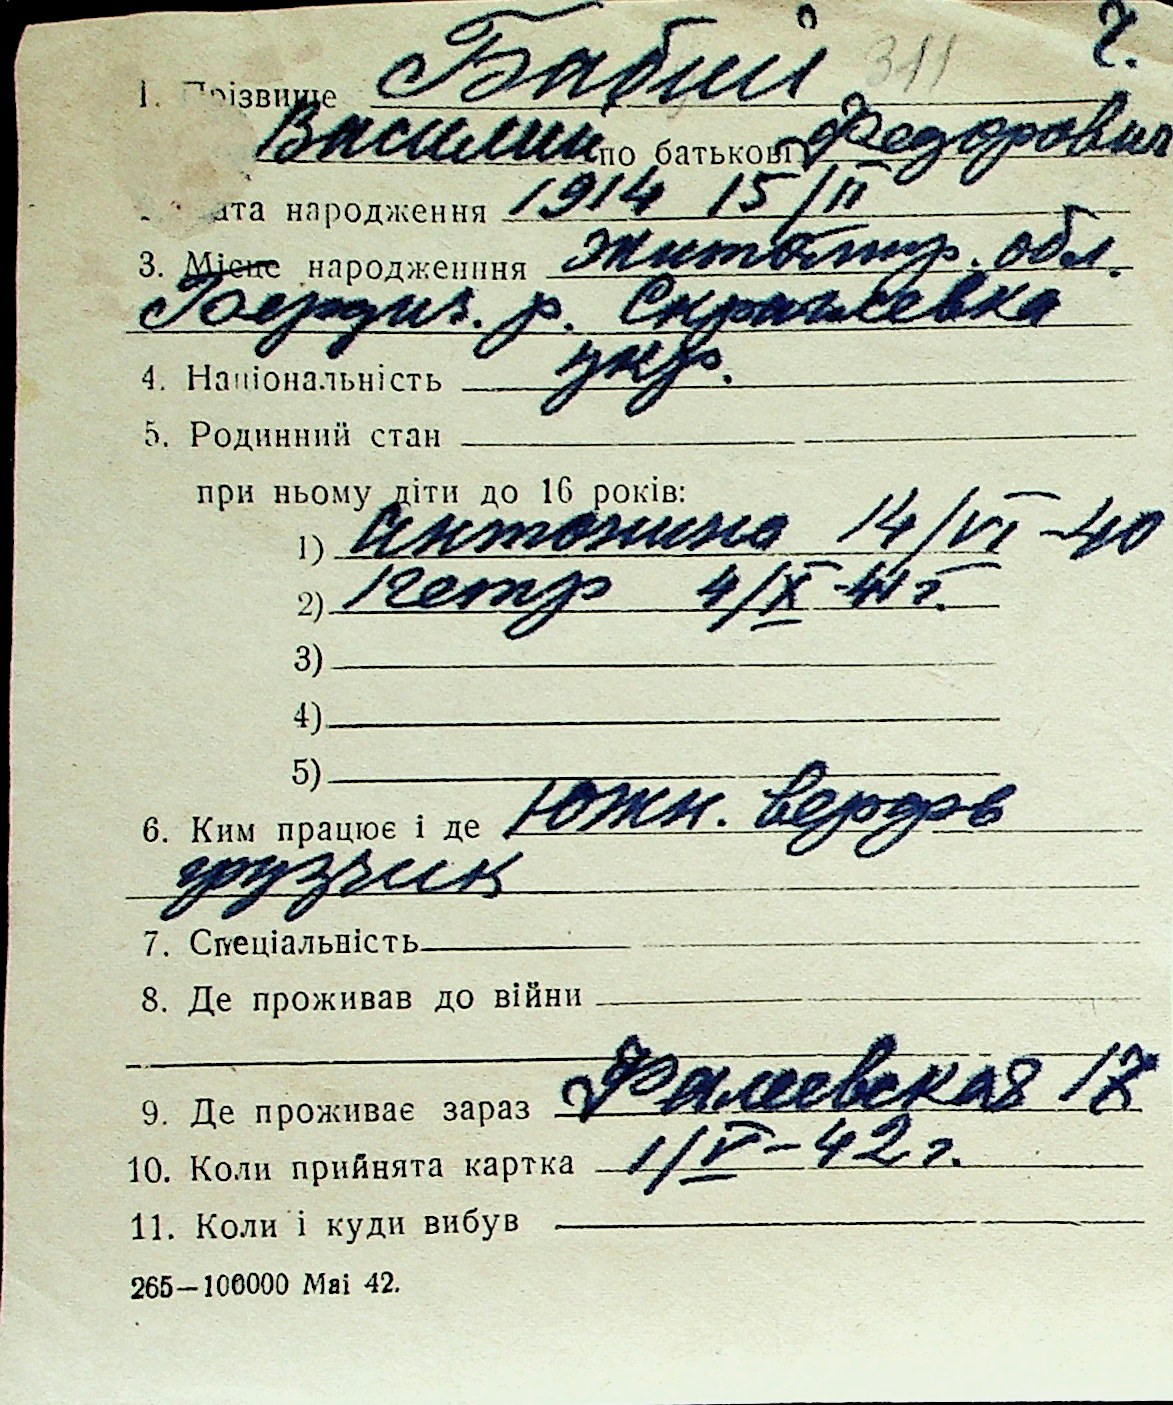 311 ч.
1. Прізвище Бабий
Василий по батькові Федорович
дата народження 1914 15/II
3. Місце народженння Житомир. обл.
Бердич. р. Скраглевка
4. Національність укр.
5. Родинний стан
при ньому діти до 16 років:
1) Антонина 14/VI-40
2) Петр 4/X 41 г.
3)
4)
5)
6. Ким працює і де Южн. верфь
грузчик
7. Спеціальність
8. Де проживав до війни
9. Де проживає зараз Фалеевская 17
10. Коли прийнята картка 1/V-42 г.
11. Коли і куди вибув
265—100000 Mai 42.